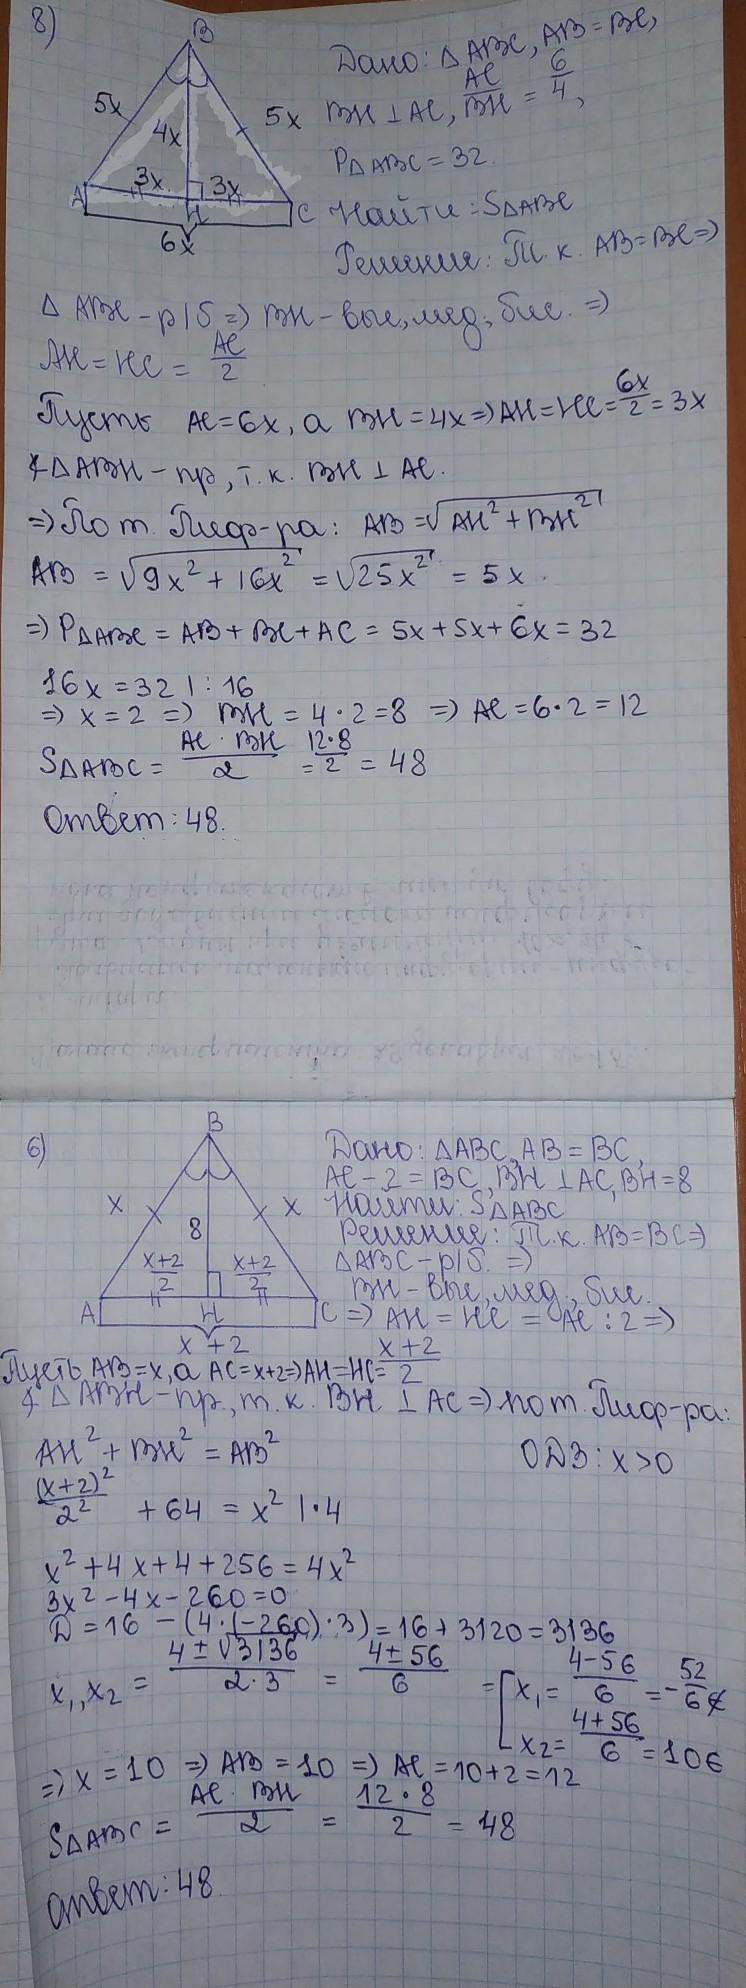 8)
B
5x
4x
5x
3x
3x
A
H
C
6x
Дано: △ABC, AB=BC,
BH⊥AC, AC/BH = 6/4,
P△ABC = 32.
Найти: S△ABC
Решение: Т.к. AB=BC⇒
△ABC - р/б ⇒ BH - выс, мед., бис. ⇒
AH = HC = AC/2
Пусть AC=6x, а BH=4x⇒AH=HC=6x/2=3x
∢△ABH - пр, т.к. BH⊥AC.
⇒ По т. Пиф-ра: AB=√AH²+BH²
AB = √9x²+16x² = √25x² = 5x.
⇒ P△ABC = AB+BC+AC = 5x+5x+6x=32
16x=32 |:16
⇒ x=2 ⇒ BH = 4·2=8 ⇒ AC=6·2=12
S△ABC = AC·BH/2 = 12·8/2 = 48
Ответ: 48.
6)
B
x
x
8
x+2/2
x+2/2
A
H
C
x+2
Дано: △ABC, AB=BC,
AC-2=BC, BH⊥AC, BH=8
Найти: S△ABC
Решение: Т.к. AB=BC⇒
△ABC-р/б. ⇒
BH-выс, мед., бис.
⇒ AH = HC = AC:2 ⇒
Пусть AB=x, а AC=x+2⇒AH=HC=x+2/2
∢ △ABH-пр., т.к. BH⊥AC⇒ по т. Пиф-ра:
AH²+BH²=AB²
ОДЗ: x>0
(x+2)²/2² + 64 = x² |·4
x²+4x+4+256=4x²
3x²-4x-260=0
D=16-(4·(-260)·3)=16+3120=3136
x₁,x₂ = 4±√3136/2·3 = 4±56/6 = [x₁=4-56/6=-52/6∉
x₂=4+56/6=10∈
⇒ x=10 ⇒ AB=10 ⇒ AC=10+2=12
S△ABC = AC·BH/2 = 12·8/2 = 48
Ответ: 48.